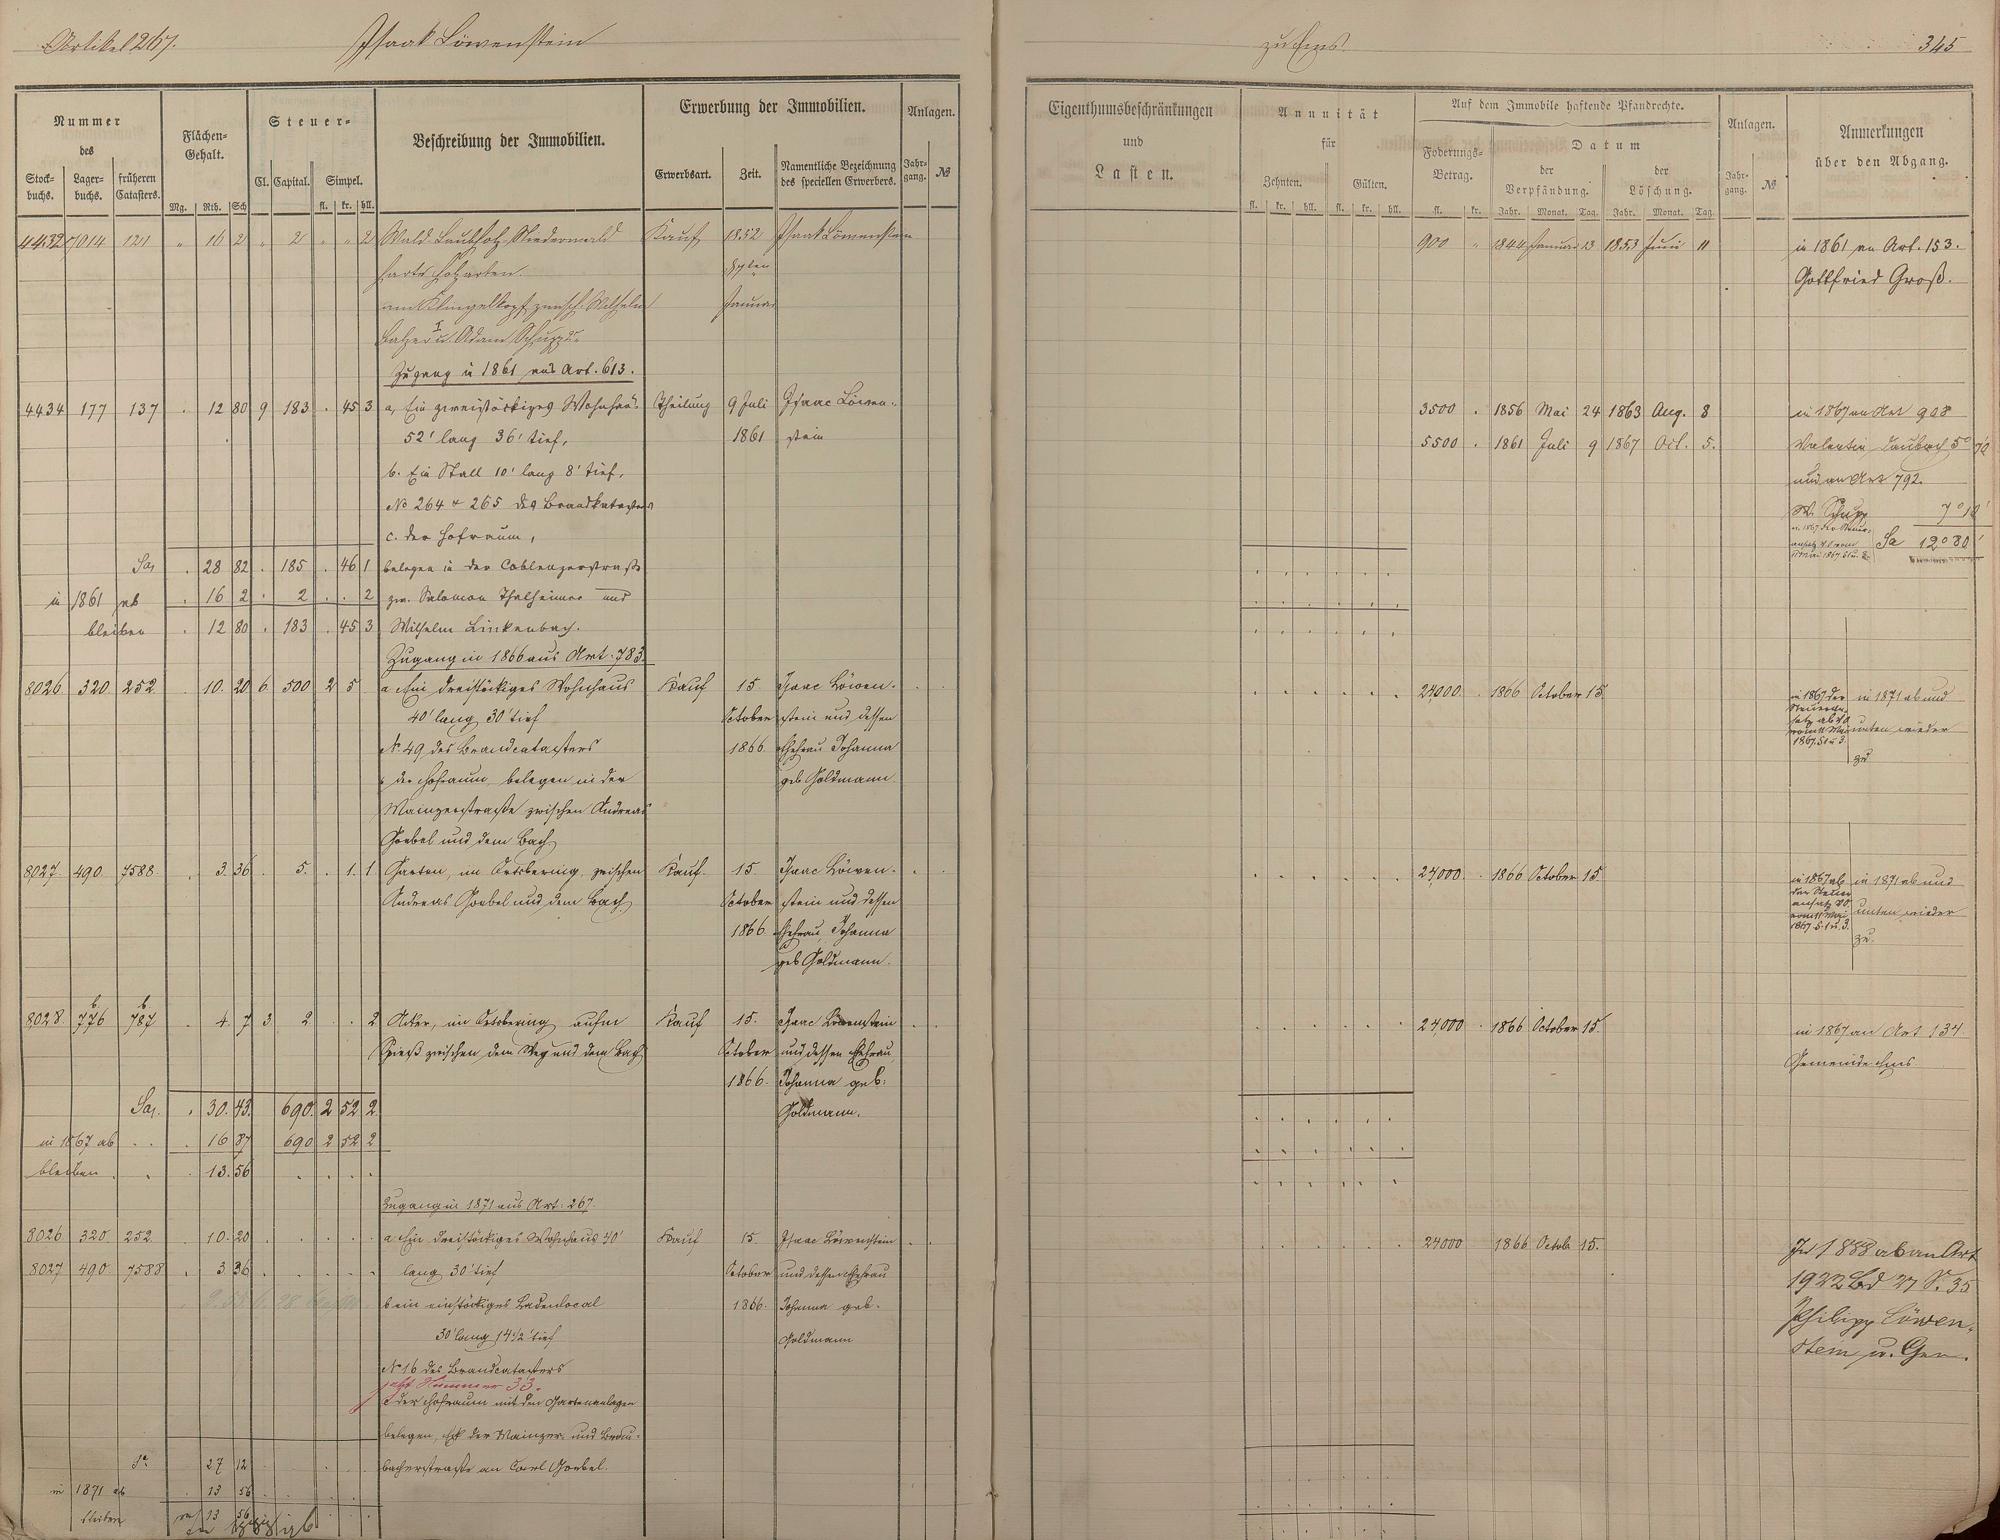 Artikel 267. Isaak Löwenstein zu Ems 345
Nummer des
Stock-buchs. Lager-buchs. früheren Catasters.
Flächen-Gehalt.
Mg. Rth. Sch
Steuer-
Cl. Capital. Simpel.
fl. kr. hll.
Beschreibung der Immobilien.
Erwerbung der Immobilien.
Erwerbsart. Zeit. Namentliche Bezeichnung des speciellen Erwerbers.
Anlagen.
Jahr-gang. №
Eigenthumsbeschränkungen und Lasten.
Annuität für
Zehnten. Gülten.
fl. kr. hll. fl. kr. hll.
Auf dem Immobile haftende Pfandrechte.
Foderungs-Betrag. Datum
der Verpfändung. der Löschung.
fl. kr. Jahr. Monat. Tag. Jahr. Monat. Tag.
Anlagen.
Jahr-gang. №
Anmerkungen über den Abgang.
4432 7014 1211 " 16 2 " 2 " " 2 Wald Laubholz Niederwald Kauf 1852 Isaak Löwenstein 900 " 1844 Januar 23 1853 Juni 11 in 1861 an Art. 153.
harte Holzarten. Gottfried Groß.
am Klingelkopf zwisch. Wilhelm Januar
Balzer I u. Adam Schupp
Zugang in 1861 aus Art. 613.
4434 177 137 . 12 80 9 183 . 45 3 a, Ein zweistöckiges Wohnhaus Theilung 9 Juli Isaac Löwen- 3500 . 1856 Mai 24 1863 Aug. 8 in 1867 an Art 908
52' lang 36' tief, 1861 stein 5500 . 1861 Juli 9 1867 Oct. 5. Valentin Laubach 5° 70
b. Ein Stall 10' lang 8' tief, und an Art 792.
№ 264 & 265 des Brandkatasters W. Schupp 7° 10'
c. der Hofraum, Sa 12° 80'
Sa. . 28 82 . 185 . 46 1 belegen in der Coblenzerstraße
in 1861 ab . 16 2 . 2 . . 2 zw. Salomon Thalheimer und
bleiben . 12 80 . 183 . 45 3 Wilhelm Linkenbach.
Zugang in 1866 aus Art. 783
8026 320 252 . 10. 20 6. 500 2 5 . a Ein dreistöckiges Wohnhaus Kauf 15. Isaac Löwen- 24,000 . 1866 October 15. in 1867 der in 1871 ab und
40' lang 30' tief October stein und dessen unten wieder
№. 49 des Brandcatasters 1866. Ehefrau Johanna zu
b der Hofraum belegen in der geb. Goldmann
Mainzerstraße zwischen Andreas
Goebel und dem Bach
8027. 490. 7588. . 3. 36 . 5. . 1. 1 Garten, im Ortsbering, zwischen Kauf. 15. Isaac Löwen- 24,000 . 1866 October 15. in 1867 ab in 1871 ab und
Andreas Goebel und dem Bach. October stein und dessen unten wieder
1866. Ehefrau, Johanna zu.
geb. Goldmann.
8028. 776 b. 787 b. . 4. 7 3. 2 . . 2 Acker, im Ortsbering aufm Kauf 15. Isaac Löwenstein 24000 . 1866 October 15. in 1867 an Art 134
Spieß zwischen dem Weg und dem Bach October und dessen Ehefrau Gemeinde Ems
1866. Johanna geb:
Sa. . 30. 43. 690. 2 52 2 Goldmann.
in 1867 ab . . 16 87 690 2 52 2
bleiben . . . 13. 56
Zugang in 1871 aus Art: 267.
8026 320 252 . 10. 20 a Ein dreistöckiges Wohnhaus 40' Kauf 15. Isaac Löwenstein 24000 1866 Octob. 15. In 1888 ab an Art
8027 490 7588 . 3 36 lang 30' tief October und dessen Ehefrau 1922 Bd 27 S. 35
b ein einstöckiges Ladenlocal 1866. Johanna geb. Philipp Löwen-
30' lang 14 1/2' tief Goldmann stein u. Gen.
№ 16 des Brandcatasters
jetzt Nummer 33.
c der Hofraum mit den Gartenanlagen
belegen, Eck der Mainzer- und Brau-
Sa 27 12 bacherstraße an Carl Goebel.
in 1871 ab . 13 56
bleiben 13 56